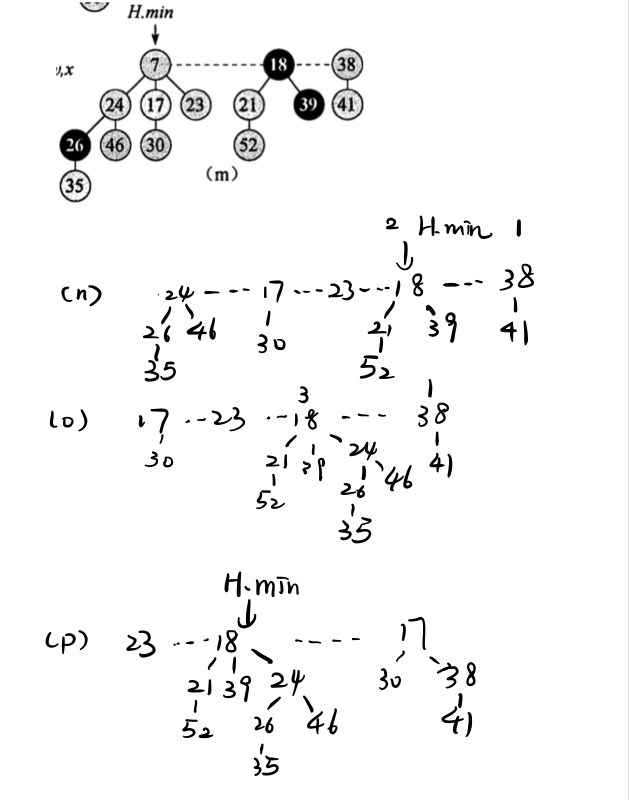 H.min
υ,x
7 18 38
24 17 23 21 39 41
26 46 30 52
(m)
35
2 H.min 1
(n) 24 17 23 18 38
26 46 30 21 39 41
35 52
3 1
(o) 17 23 18 38
30 21 39 24 41
52 26 46
35
H.min
(p) 23 18 17
21 39 24 30 38
52 26 46 41
35